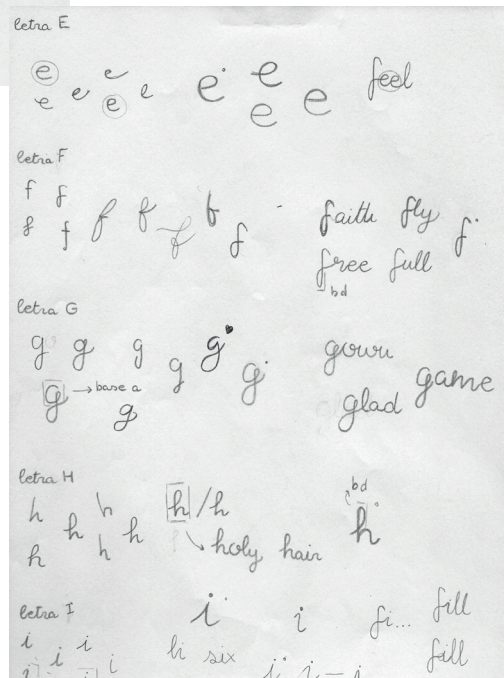 letra E
e e e e e e e e e e feel
letra F
f f f f f f f f f faith fly f
free full
bd
letra G
g g g g g g gown
g → base a g glad game
letra H
h h h h h h h / h bd
h
holy, hair
letra I
i i fi... fill
i i i i hi six fill
i i i i – i